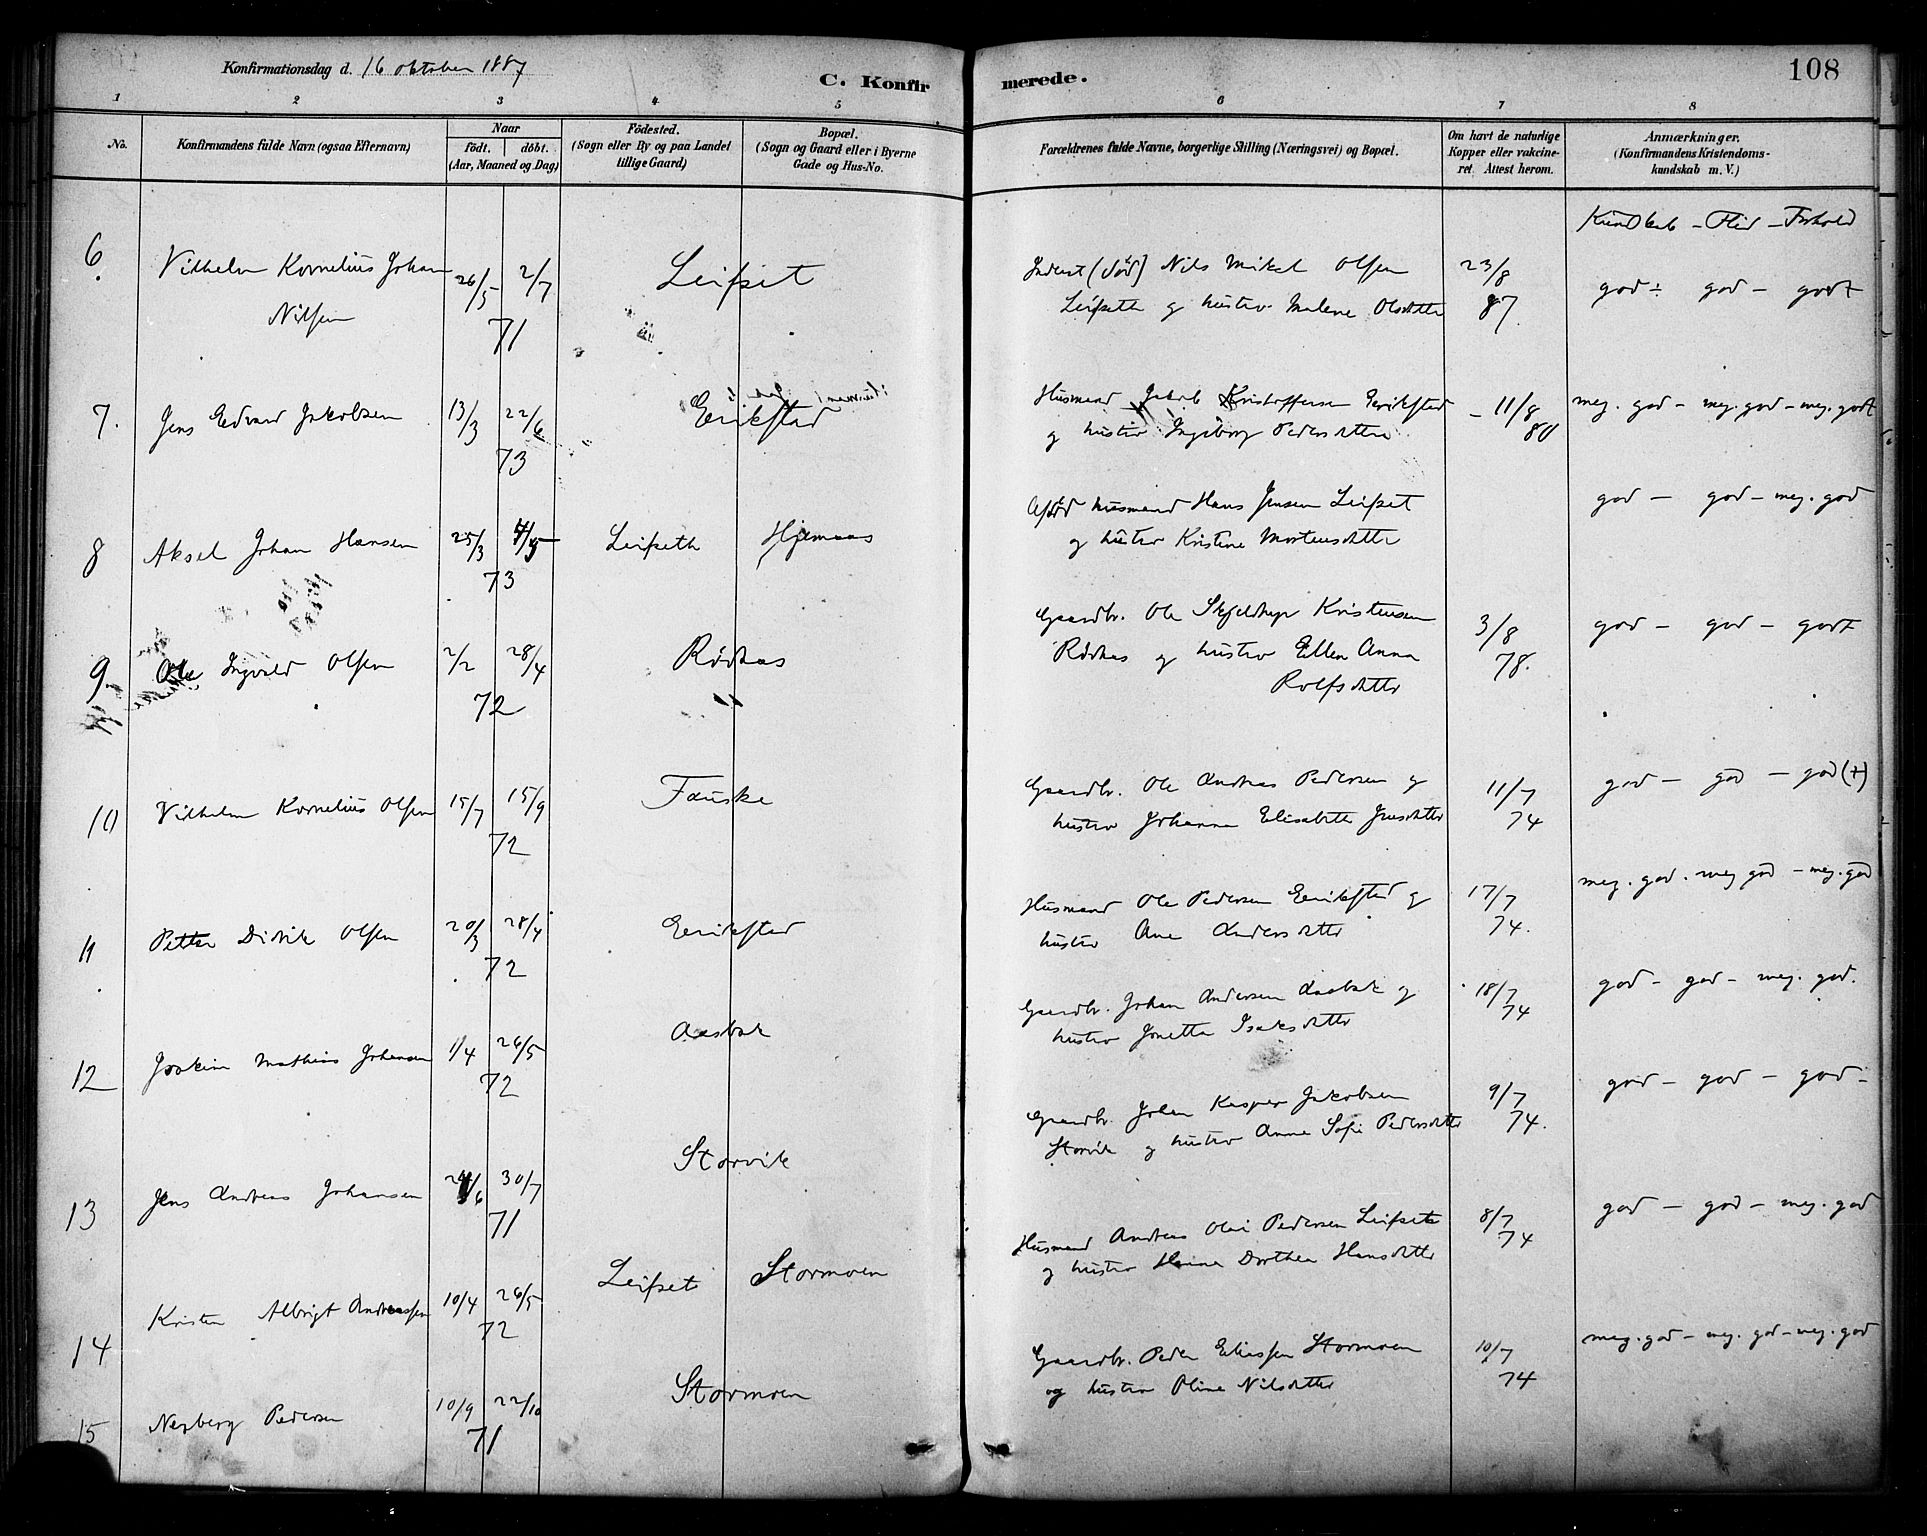 Konfirmationsdag d. 16 oktober 1887
C. Konfirmerede.
108
1 2 3 4 5 6 7 8
No.
Konfirmandens fulde Navn (ogsaa Efternavn)
Naar
födt. döbt.
(Aar, Maaned og Dag)
Födested.
(Sogn eller By og paa Landet
tillige Gaard)
Bopæl.
(Sogn og Gaard eller i Byerne
Gade og Hus-No.
Forældrenes fulde Navne, borgerlige Stilling (Næringsvei) og Bopæl.
Om havt de naturlige
Kopper eller vakcine-
ret. Attest herom.
Anmærkninger.
(Konfirmandens Kristendoms-
kundskab m. V.)
Kundskab - Flid - Forhold
6. Vilhelm Kornelius Johan 26/5 2/7 Leifset Inderst (död) Nils Mikal Olsen 23/8 god÷ god - godt
Nilsen 71 Leifseth og hustro Malene Olsdtter 87.
7. Jens Edvard Jakobsen 13/3 22/6 Eerikstad Husmand Jakob Kristoffersen Eerikstad - 11/8 meg. god - meg. god - meg. godt
73 og hustro Ingeborg Pedersdatter 80
8 Aksel Johan Hansen 25/3 4/5 Leifseth Hjemaas Afdöd husmand Hans Jensen Leifset god - god - meg. god
73 og hustro Kristine Mortensdtter
9. Ole Ingvald Olsen 2/2 28/4 Rödaas Gaardbr. Ole Kristensen 3/8 god - god - godt
72 og hustro Ellen Anna 78.
Rolfsdtter
10 Vilhelm Kornelius Olsen 15/7 15/9 Fauske Gaardbr. Ole Andreas Pedersen og 11/7 god - god - god (+)
72 hustro Johanna Elisabeth Jensdtter 74
11 Petter Didrik Olsen 20/3 28/4 Eerikstad Husmand Ole Pedersen Eerikstad og 17/7 meg. god. meg god - meg. god
72 hustro Ane Andersdtter 74.
12 Joakim Mathias Johansen 1/4 26/5 Aasbak Gaardbr. Johan Andersen Aasbak og 18/7 god - god - meg. god.
72 hustro Jonetta Isaksdtter 74
13 Jens Andreas Johansen 24/6 30/7 Storvik Gaardbr. Johan Kasper Jakobsen 9/7 god - god - god -
71 Storvik og hustro Anna Sofie Pedersdtter 74.
14 Kristen Albrigt Andreassen 10/4 26/5 Leifset Stormoen Husmand Andreas Olai Pedersen Leifset 8/7 god - god - meg. god
72 og hustro Hanna Dorthea Hansdtter 74
15 Nerberg Pedersen 10/9 22/10 Stormoen Gaardbr. Peder Eliassen Stormoen 10/7 meg. god - meg. god - meg. god
71 og hustro Oline Nilsdtter 74